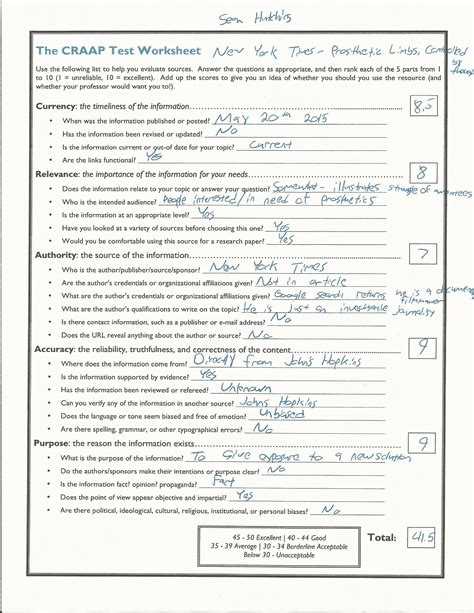 Sean Hutchins
The CRAAP Test Worksheet New York Times - Prosthetic Limbs, Controlled by thought
Use the following list to help you evaluate sources. Answer the questions as appropriate, and then rank each of the 5 parts from 1
to 10 (1 = unreliable, 10 = excellent). Add up the scores to give you an idea of whether you should you use the resource (and
whether your professor would want you to!).
Currency: the timeliness of the information 8.5
• When was the information published or posted? May 20th 2015
• Has the information been revised or updated? No
• Is the information current or out-of date for your topic? Current
• Are the links functional? Yes
Relevance: the importance of the information for your needs 8
• Does the information relate to your topic or answer your question? Somewhat - illustrates struggle of amputees
• Who is the intended audience? People interested/in need of prosthetics
• Is the information at an appropriate level? Yes
• Have you looked at a variety of sources before choosing this one? Yes
• Would you be comfortable using this source for a research paper? Yes
Authority: the source of the information 7
• Who is the author/publisher/source/sponsor? New York Times
• Are the author's credentials or organizational affiliations given? Not in article
• What are the author's credentials or organizational affiliations given? Google search returns he is a documentary filmmaker
• What are the author's qualifications to write on the topic? He is just an investigative journalist
• Is there contact information, such as a publisher or e-mail address? No
• Does the URL reveal anything about the author or source? No
Accuracy: the reliability, truthfulness, and correctness of the content 9
• Where does the information come from? Directly from Johns Hopkins
• Is the information supported by evidence? Yes
• Has the information been reviewed or refereed? Unknown
• Can you verify any of the information in another source? Johns Hopkins
• Does the language or tone seem biased and free of emotion? Unbiased
• Are there spelling, grammar, or other typographical errors? No
Purpose: the reason the information exists 9
• What is the purpose of the information? To Give exposure to a new solution
• Do the author/sponsors make their intentions or purpose clear? No
• Is the information fact? opinion? propaganda? Fact
• Does the point of view appear objective and impartial? Yes
• Are there political, ideological, cultural, religious, institutional, or personal biases? No
45 - 50 Excellent | 40 - 44 Good
35 - 39 Average | 30 - 34 Borderline Acceptable
Below 30 - Unacceptable
Total: 41.5